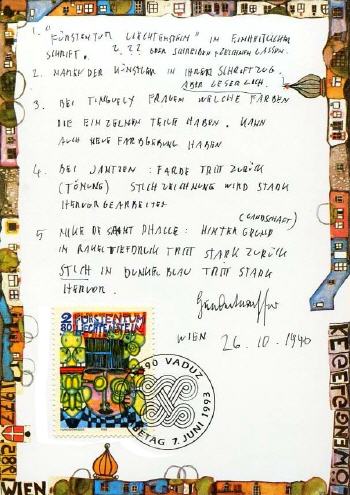 1. "FÜRSTENTUM LIECHTENSTEIN" IN EINHEITLICHER
SCHRIFT. ODER SCHREIBEN LASSEN.
2. NAMEN DER KÜNSTLER IN IHREM SCHRIFTZUG.
ABER LESERLICH.
3. BEI TINGUELY FRAGEN WELCHE FARBEN
DIE EINZELNEN TEILE HABEN. KANN
AUCH NEUE FARBGEBUNG HABEN
4. BEI FARBE TRITT ZURÜCK
(TÖNUNG) STICHZEICHNUNG WIRD STARK
HERVORGEARBEITET
(LANDSCHAFT)
5 NIKI DE SAINT PHALLE: HINTERGRUND
IN TIEFDRUCK TRITT STARK ZURÜCK
STICH IN DUNKELBLAU TRITT STARK
HERVOR.
Hundertwasser
WIEN 26.10.1990
2
80
FÜRSTENTUM
LIECHTENSTEIN
9490 VADUZ
7. JUNI 1993
1977
1987
WIEN